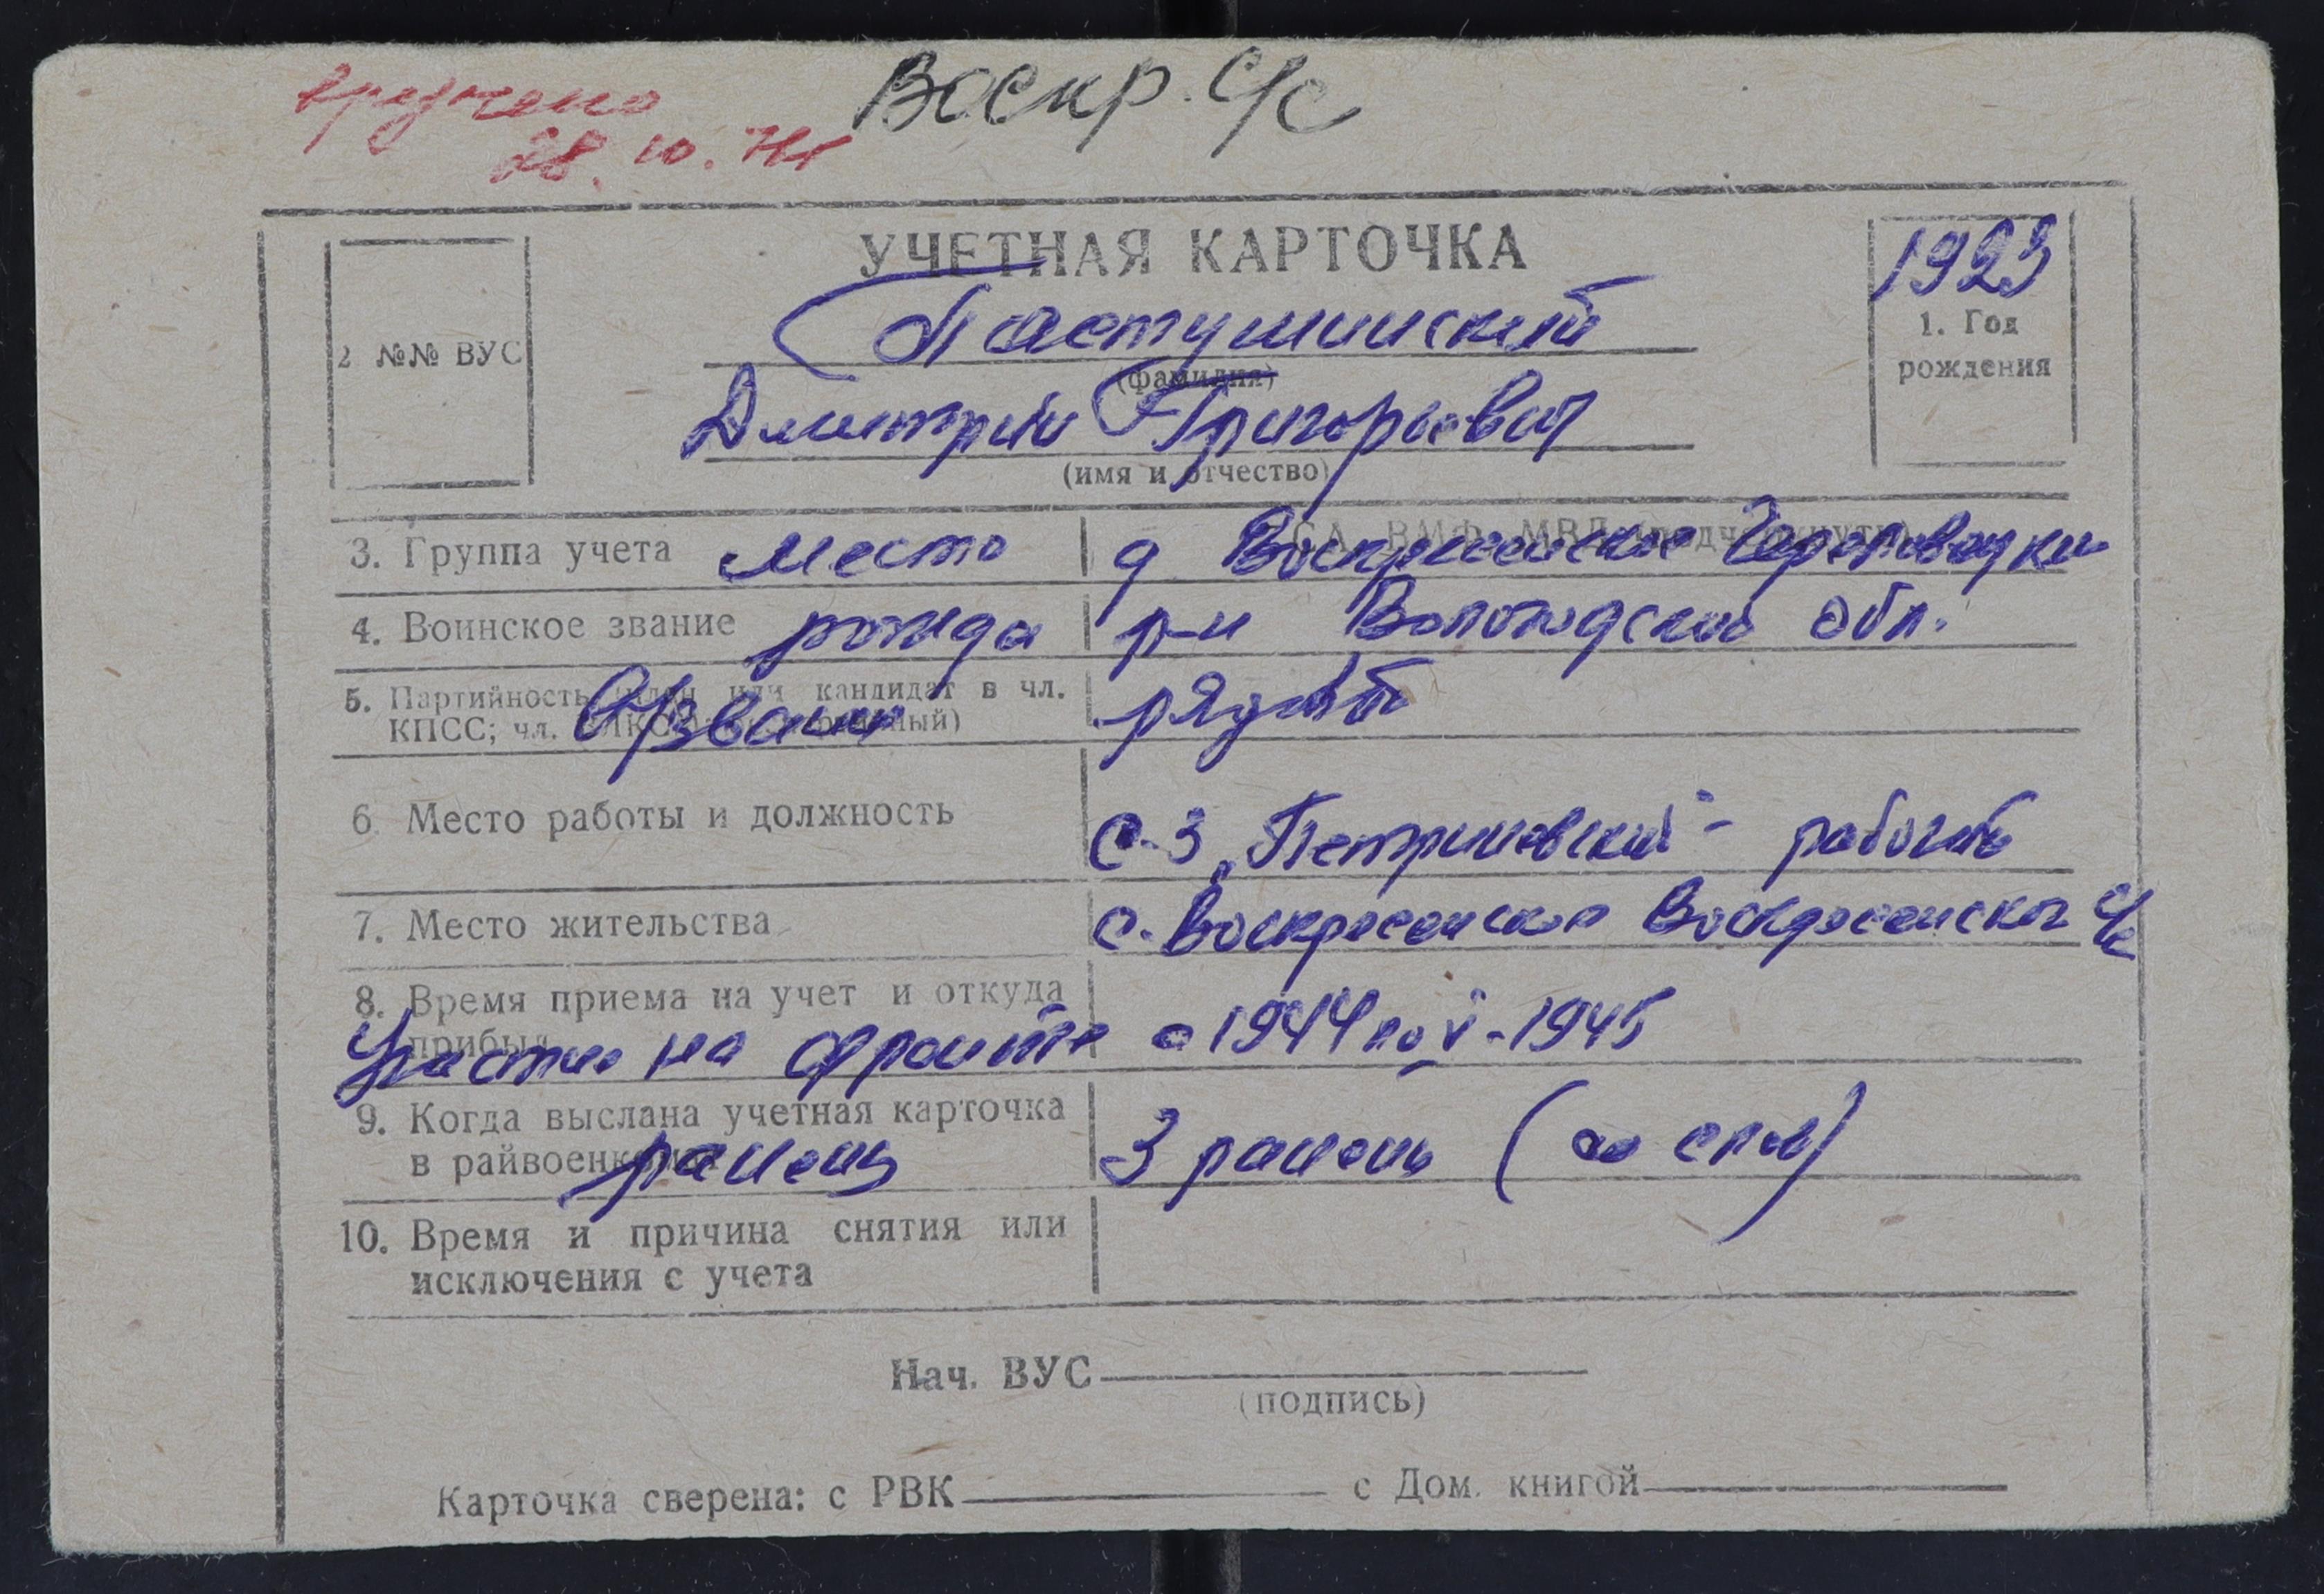 вручено Воскр. с/с
28.10.71г
УЧЕТНАЯ КАРТОЧКА
1923
1. Год
рождения
2 №№ ВУС
Пастушинский
(фамилия)
Дмитрий Григорьевич
(имя и отчество)
3. Группа учета место д Воскресенское Череповецкий
4. Воинское звание рожда р-н Вологодской обл.
5. Партийность (член или кандидат в чл.
КПСС; чл. ВЛКСМ; звание рядовой
6. Место работы и должность с-з „Петриневский" - рабочий
7. Место жительства с. Воскресенское Воскресенского с/с
8. Время приема на учет и откуда
прибыл
Участие на фронте с 1944 по V-1945
9. Когда выслана учетная карточка
в райвоенкомат ранен 3 ранен (со слов)
10. Время и причина снятия или
исключения с учета
Нач. ВУС
(подпись)
Карточка сверена: с РВК с Дом. книгой